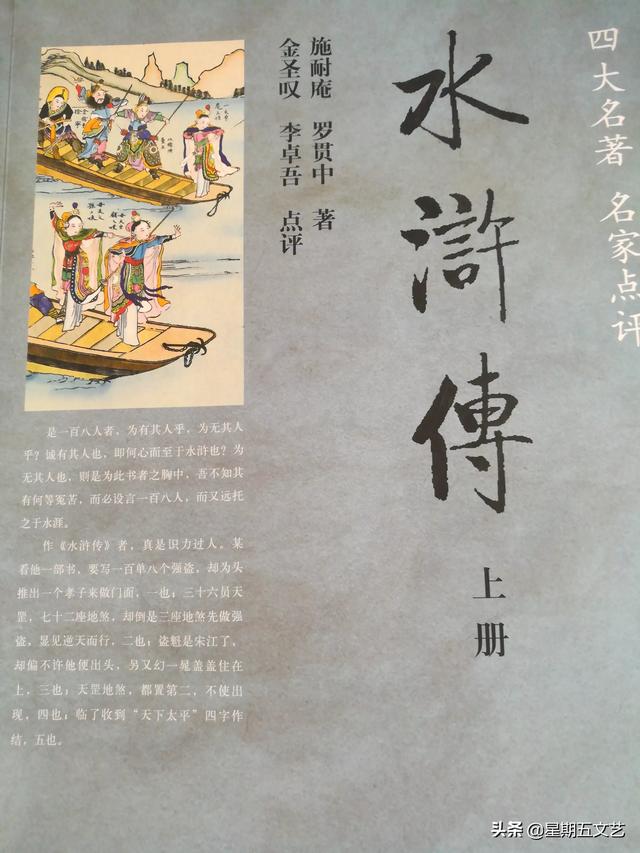 四大名著 名家点评
水滸傳
上册
施耐庵 罗贯中 著
金圣叹 李卓吾 点评
是一百八人者，为有其人乎，为无其人
乎？诚有其人也，即何心而至于水浒也？为
无其人也，则是为此书者之胸中，吾不知其
有何等冤苦，而必设言一百八人，而又远托
之于水涯。
作《水浒传》者，真是识力过人。某
看他一部书，要写一百单八个强盗，却为头
推出一个孝子来做门面，一也；三十六员天
罡，七十二座地煞，却倒是三座地煞先做强
盗，显见逆天而行，二也；盗魁是宋江了，
却偏不许他便出头，另又幻一晁盖盖住在
上，三也；天罡地煞，都置第二，不使出
现，四也；临了收到“天下太平”四字作
结，五也。
头条 @星期五文艺